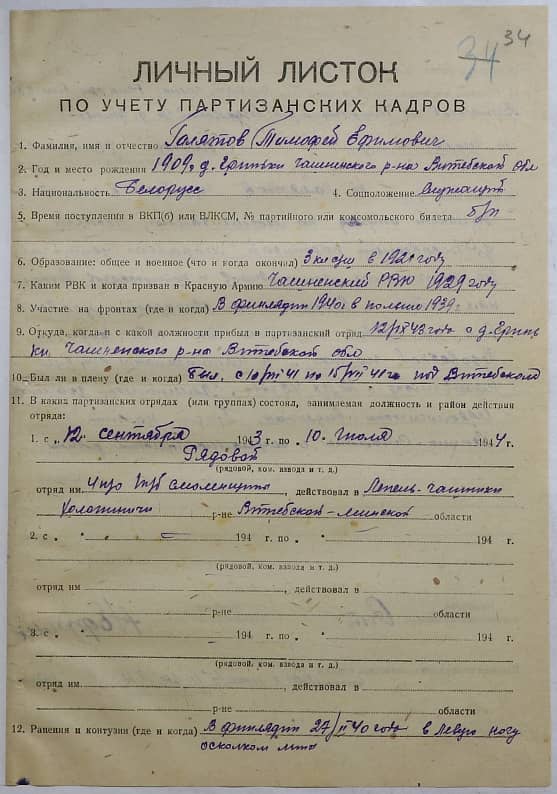 34 34
ЛИЧНЫЙ ЛИСТОК
ПО УЧЕТУ ПАРТИЗАНСКИХ КАДРОВ
1. Фамилия, имя и отчество Голятов Тимофей Ефимович
2. Год и место рождения 1909г д. Чашникского р-на Витебской обл
3. Национальность Белорусс 4. Соцположение Служащий
5. Время поступления в ВКП(б) или ВЛКСМ, № партийного или комсомольского билета б/п-
6. Образование: общее и военное (что и когда окончил) 3 класса в 1921 году
7. Каким РВК и когда призван в Красную Армию Чашненский РВК 1929 году
8. Участие на фронтах (где и когда) В финляндии 1940г в польше 1939г.
9. Откуда, когда и с какой должности прибыл в партизанский отряд 12/IX 43 года с д.
Чашненского р-на Витебской обл
10. Был ли и плену (где и когда) был. с 10/VII 41 по 15/VII 41г под Витебском
11. В каких партизанских отрядах (или группах) состоял, занимаемая должность и район действия
отряда:
1. с „12. сентября 1943 г. по „ 10. июля 1944 г.
Рядовой
(рядовой, ком. взвода и т. д.)
отряд им. , действовал в Лепель-Чашники
Холопиничи р-не Витебской-Минской области
2. с „ 194 г. по „ 194 г.
(рядовой, ком. взвода и т. д.)
отряд им , действовал в
р-не области
3. с „ 194 г. по „ 194 г.
(рядовой, ком. взвода и т. д.)
отряд им. , действовал в
р-не области
12. Ранения и контузии (где и когда) В финлядии 27/II 40 года в левую ногу
осколком